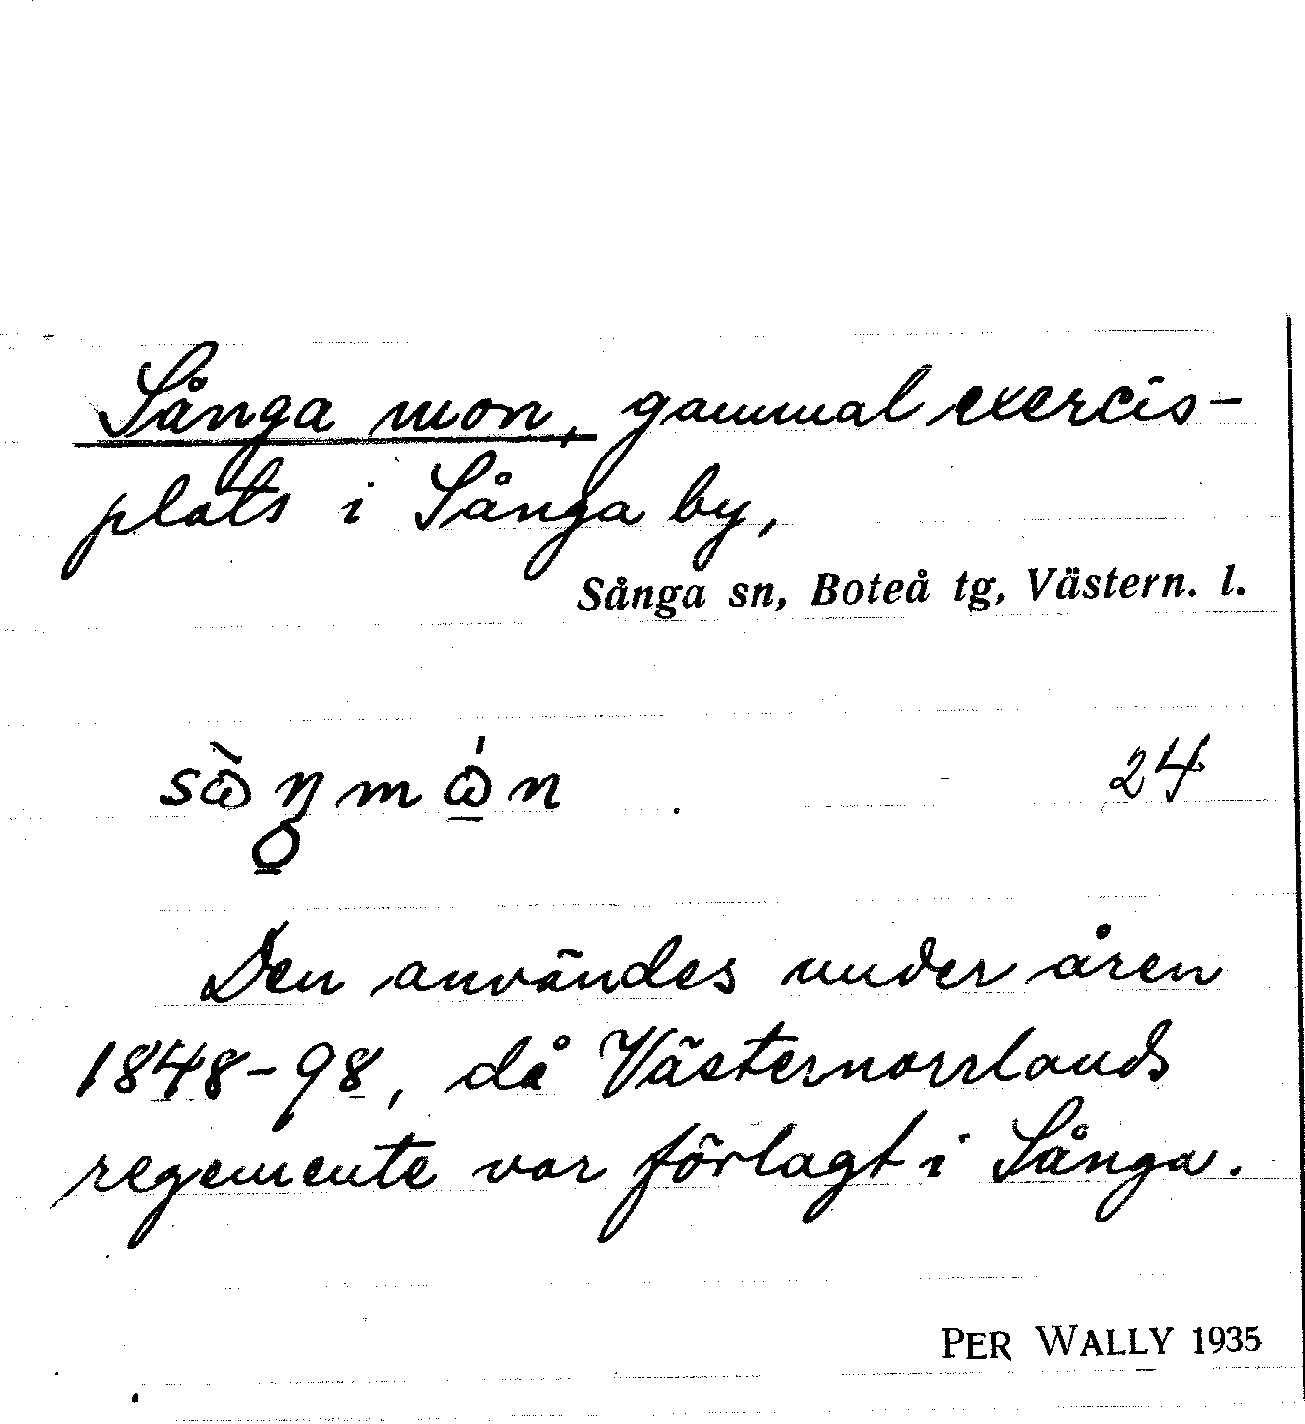 Sånga mon, gammal exercis-
plats i Sånga by,
Sånga sn, Boteå tg, Västern. l.
24
Den användes under åren
1848-98, då Västernorrlands
regemente var förlagt i Sånga.
PER WALLY 1935